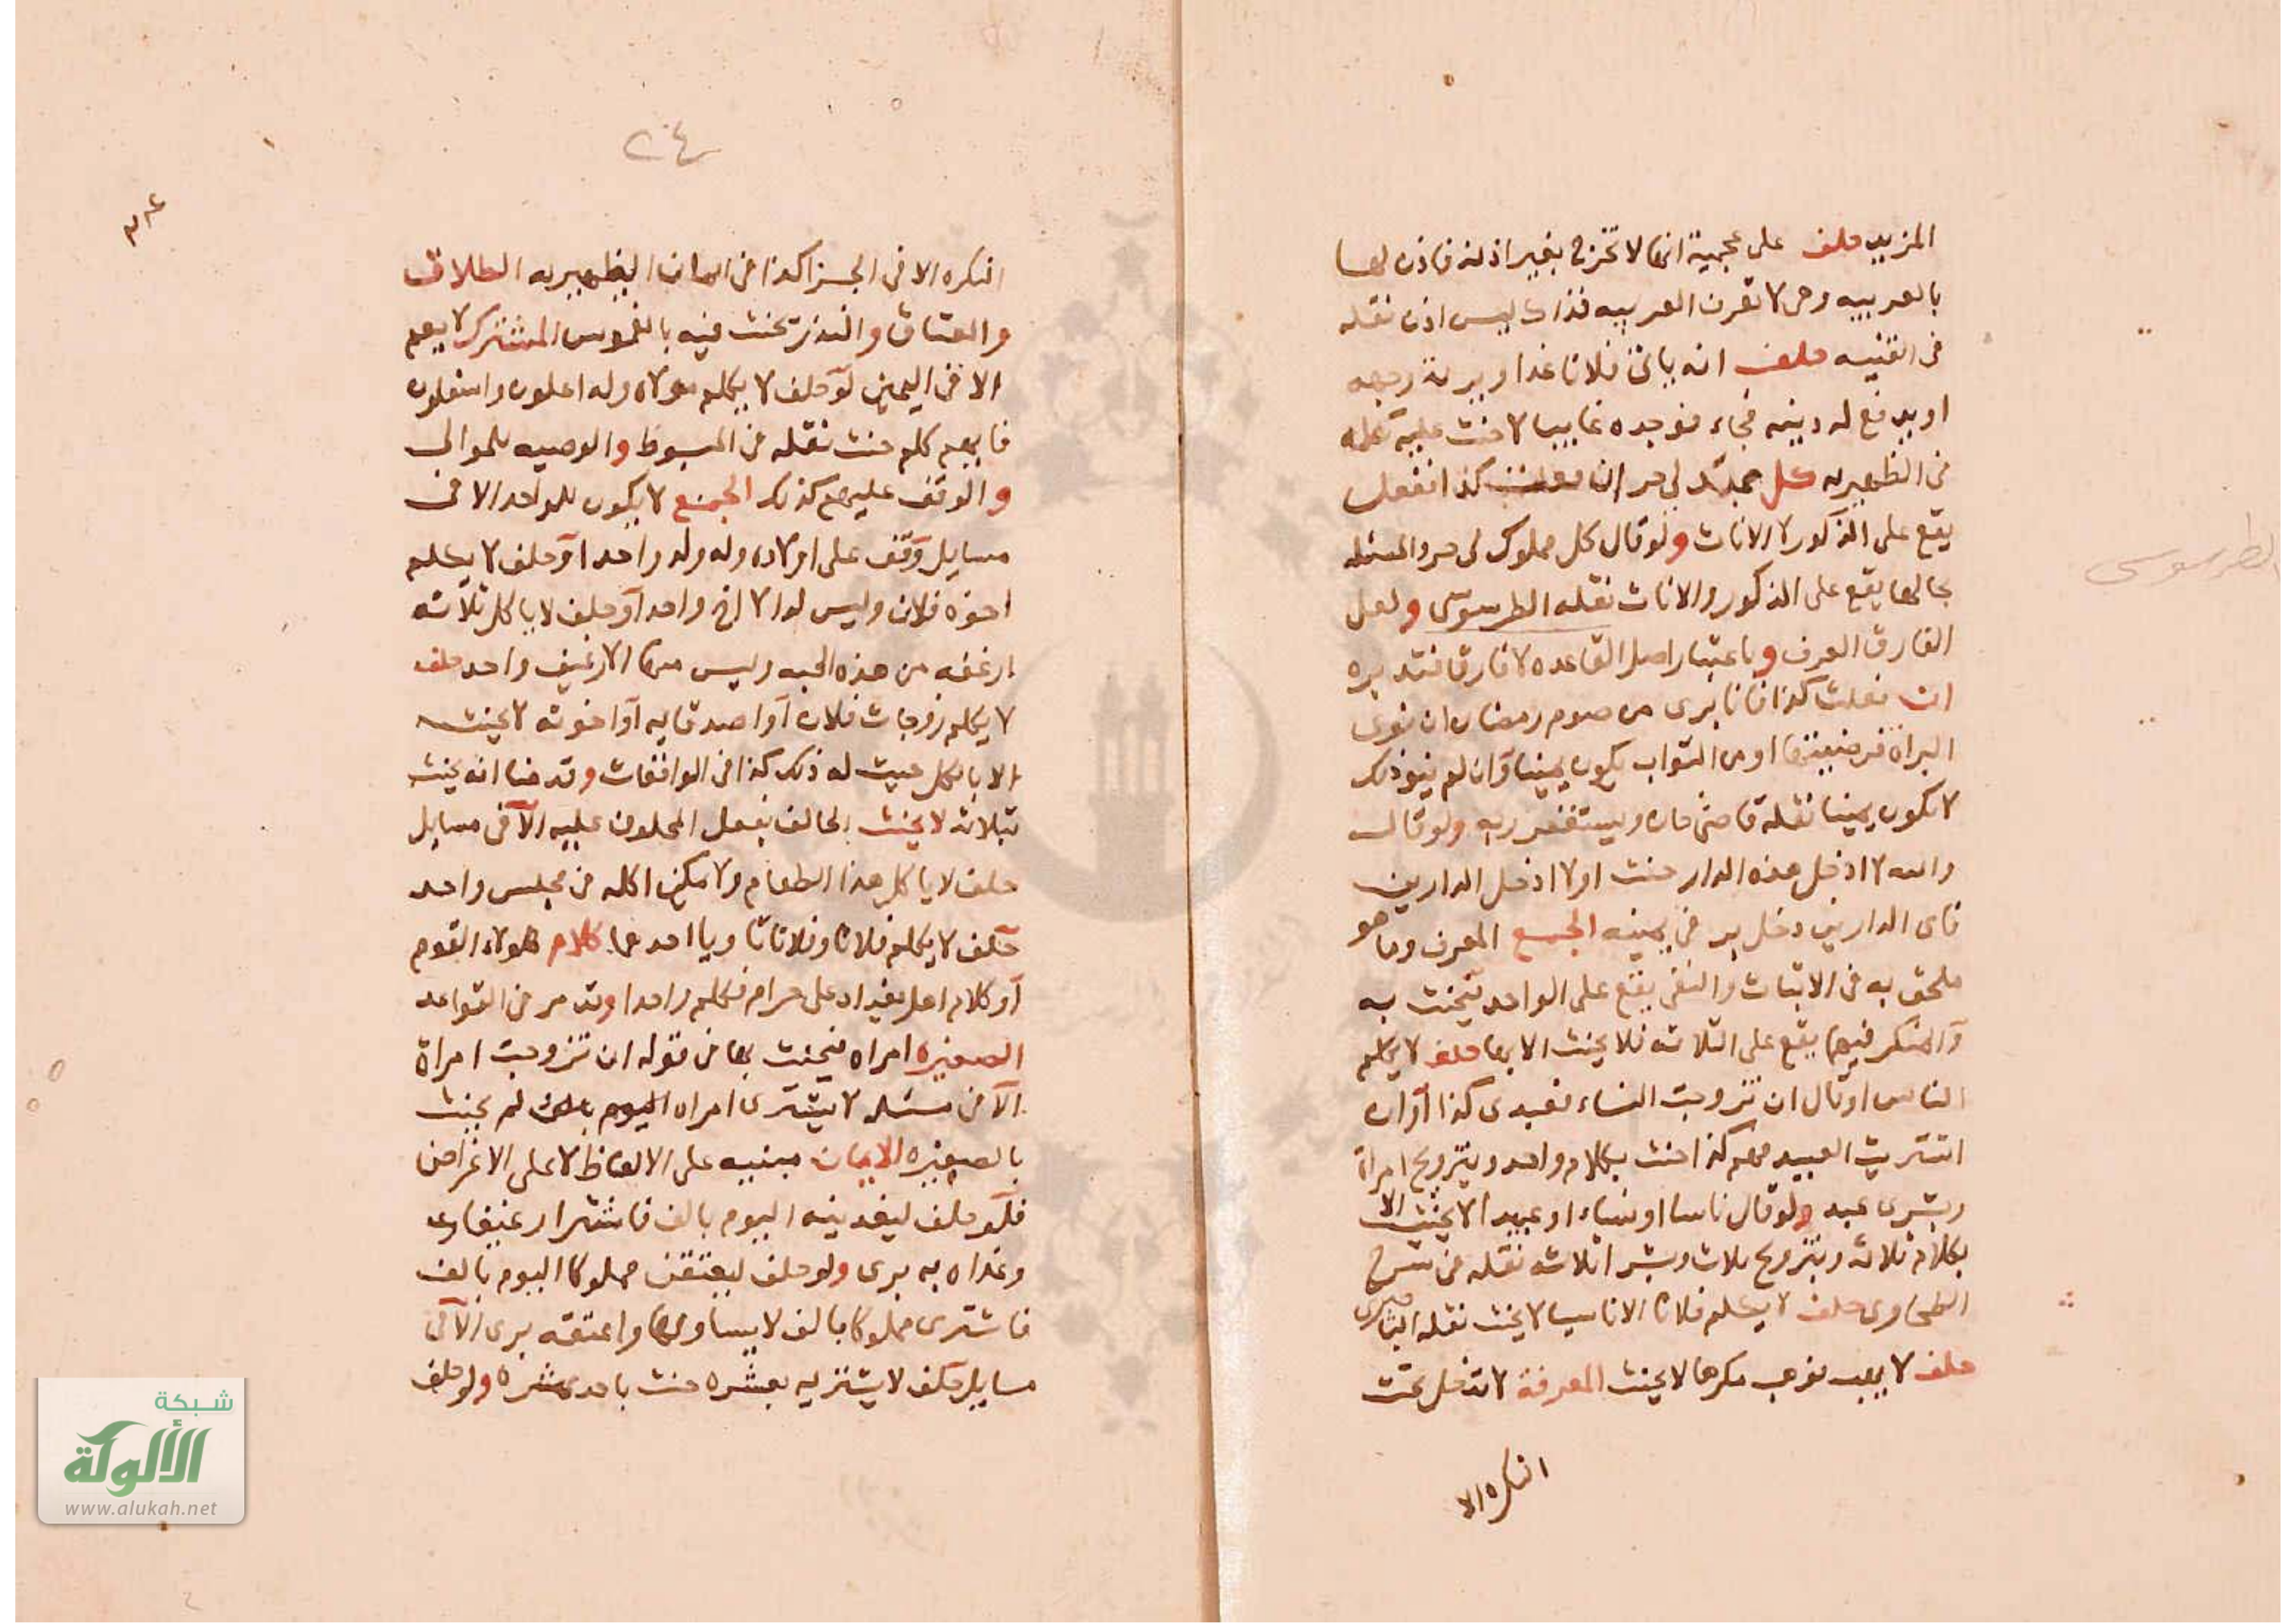 المزيد حلف على عجمية انها لا تخرج بغير اذنه فاذن لها
بالعربيه وهى لا تعرف العربيه فذاك ليس اذن نقله
فى القنيه حلف انه ياتى فلانا غدا ويريه وجهه
او يدفع له دينه فجاء فوجده غايبا لا حنث عليه نقله
فى الظهيريه كل عبد لى حر ان فعلت كذا ففعل
يقع على الذكور لا الاناث ولو قال كل مملوك لى حر والمسئله
بحالها يقع على الذكور والاناث نقله الطرسوسى ولعل
الفارق العرف وباعتبار اصل القاعده لا فارق فتدبره
ان فعلت كذا فانا برى من صوم رمضان ان نوى
البراة فرضيتها او من الثواب يكون يمينا وان لم ينو ذلك
لا يكون يمينا نقله قاضى خان ويستغفر ربه ولو قال
والله لا ادخل هذه الدار حنث او لا ادخل الدارين
فاى الدارين دخل بر فى يمينه الجمع المعرف وما هو
ملحق به فى الاثبات والنفى يقع على الواحد فيحنث به
والمنكر فيهما يقع على الثلاثه فلا يحنث الا بها حلف لا يكلم
الناس او قال ان تزوجت النساء فعبدى كذا او ان
اشتريت العبيد فهم كذا حنث بكلام واحد وبتزوج امراة
وبشرى عبد ولو قال ناسا او نساء او عبيدا لا يحنث الا
بكلام ثلاثه وبتزوج ثلاث وبشرا ثلاثه نقله فى شرح
الطحاوى حلف لا يكلم فلانا الا ناسيا لا يحنث نقله
حلف لا يهب فوهب مكرها لا يحنث المعرفة لا تدخل تحت
النكره الا
الطرسوسى
٢٠٤
النكره الا فى الجزا كذا فى ايمان الظهيريه الطلاق
والعتاق والنذر يحنث فيه بالغموس المشترك لا يعم
الا فى اليمين لو حلف لا يكلم مولاه وله اعلون واسفلون
فايهم كلم حنث نقله فى المبسوط والوصيه للموالى
والوقف عليهم كذلك الجمع لا يكون للواحد الا فى
مسايل وقف على اولاده وله ولد واحد او حلف لا يكلم
اخوة فلان وليس له الا اخ واحد او حلف لا ياكل ثلاثه
ارغفه من هذه الجبه وليس منها الا رغيف واحد حلف
لا يكلم زوجات فلان او اصدقايه او اخوته لا يحنث
الا بالكل عينت له ذلك كذا فى الواقعات وقدمنا انه يحنث
بثلاثه لا يحنث الحالف بفعل المحلوف عليه الا فى مسايل
حلف لا ياكل هذا الطعام ولا يمكن اكله فى مجلس واحد
حلف لا يكلم فلانا وفلانا ناويا احدهما كلام هولاء القوم
او كلام اهل بغداد على حرام فكلم واحدا وقد مر فى القواعد
الصغيره امراه فيحنث بها فى قوله ان تزوجت امراة
الا فى مسئله لا يشترى امراه اليوم لم يحنث
بالصغيره الايمان مبنيه على الالفاظ لا على الاغراض
فلو حلف ليغدينه اليوم بالف فاشترا رغيفا به
وغداه به برى ولو حلف ليعتقن مملوكا اليوم بالف
فاشترى مملوكا بالف لا يساويها واعتقه برى الا فى
مسايل حلف لا يشتريه بعشره حنث باحد عشره ولو حلف
شبكة
الألوكة
www.alukah.net